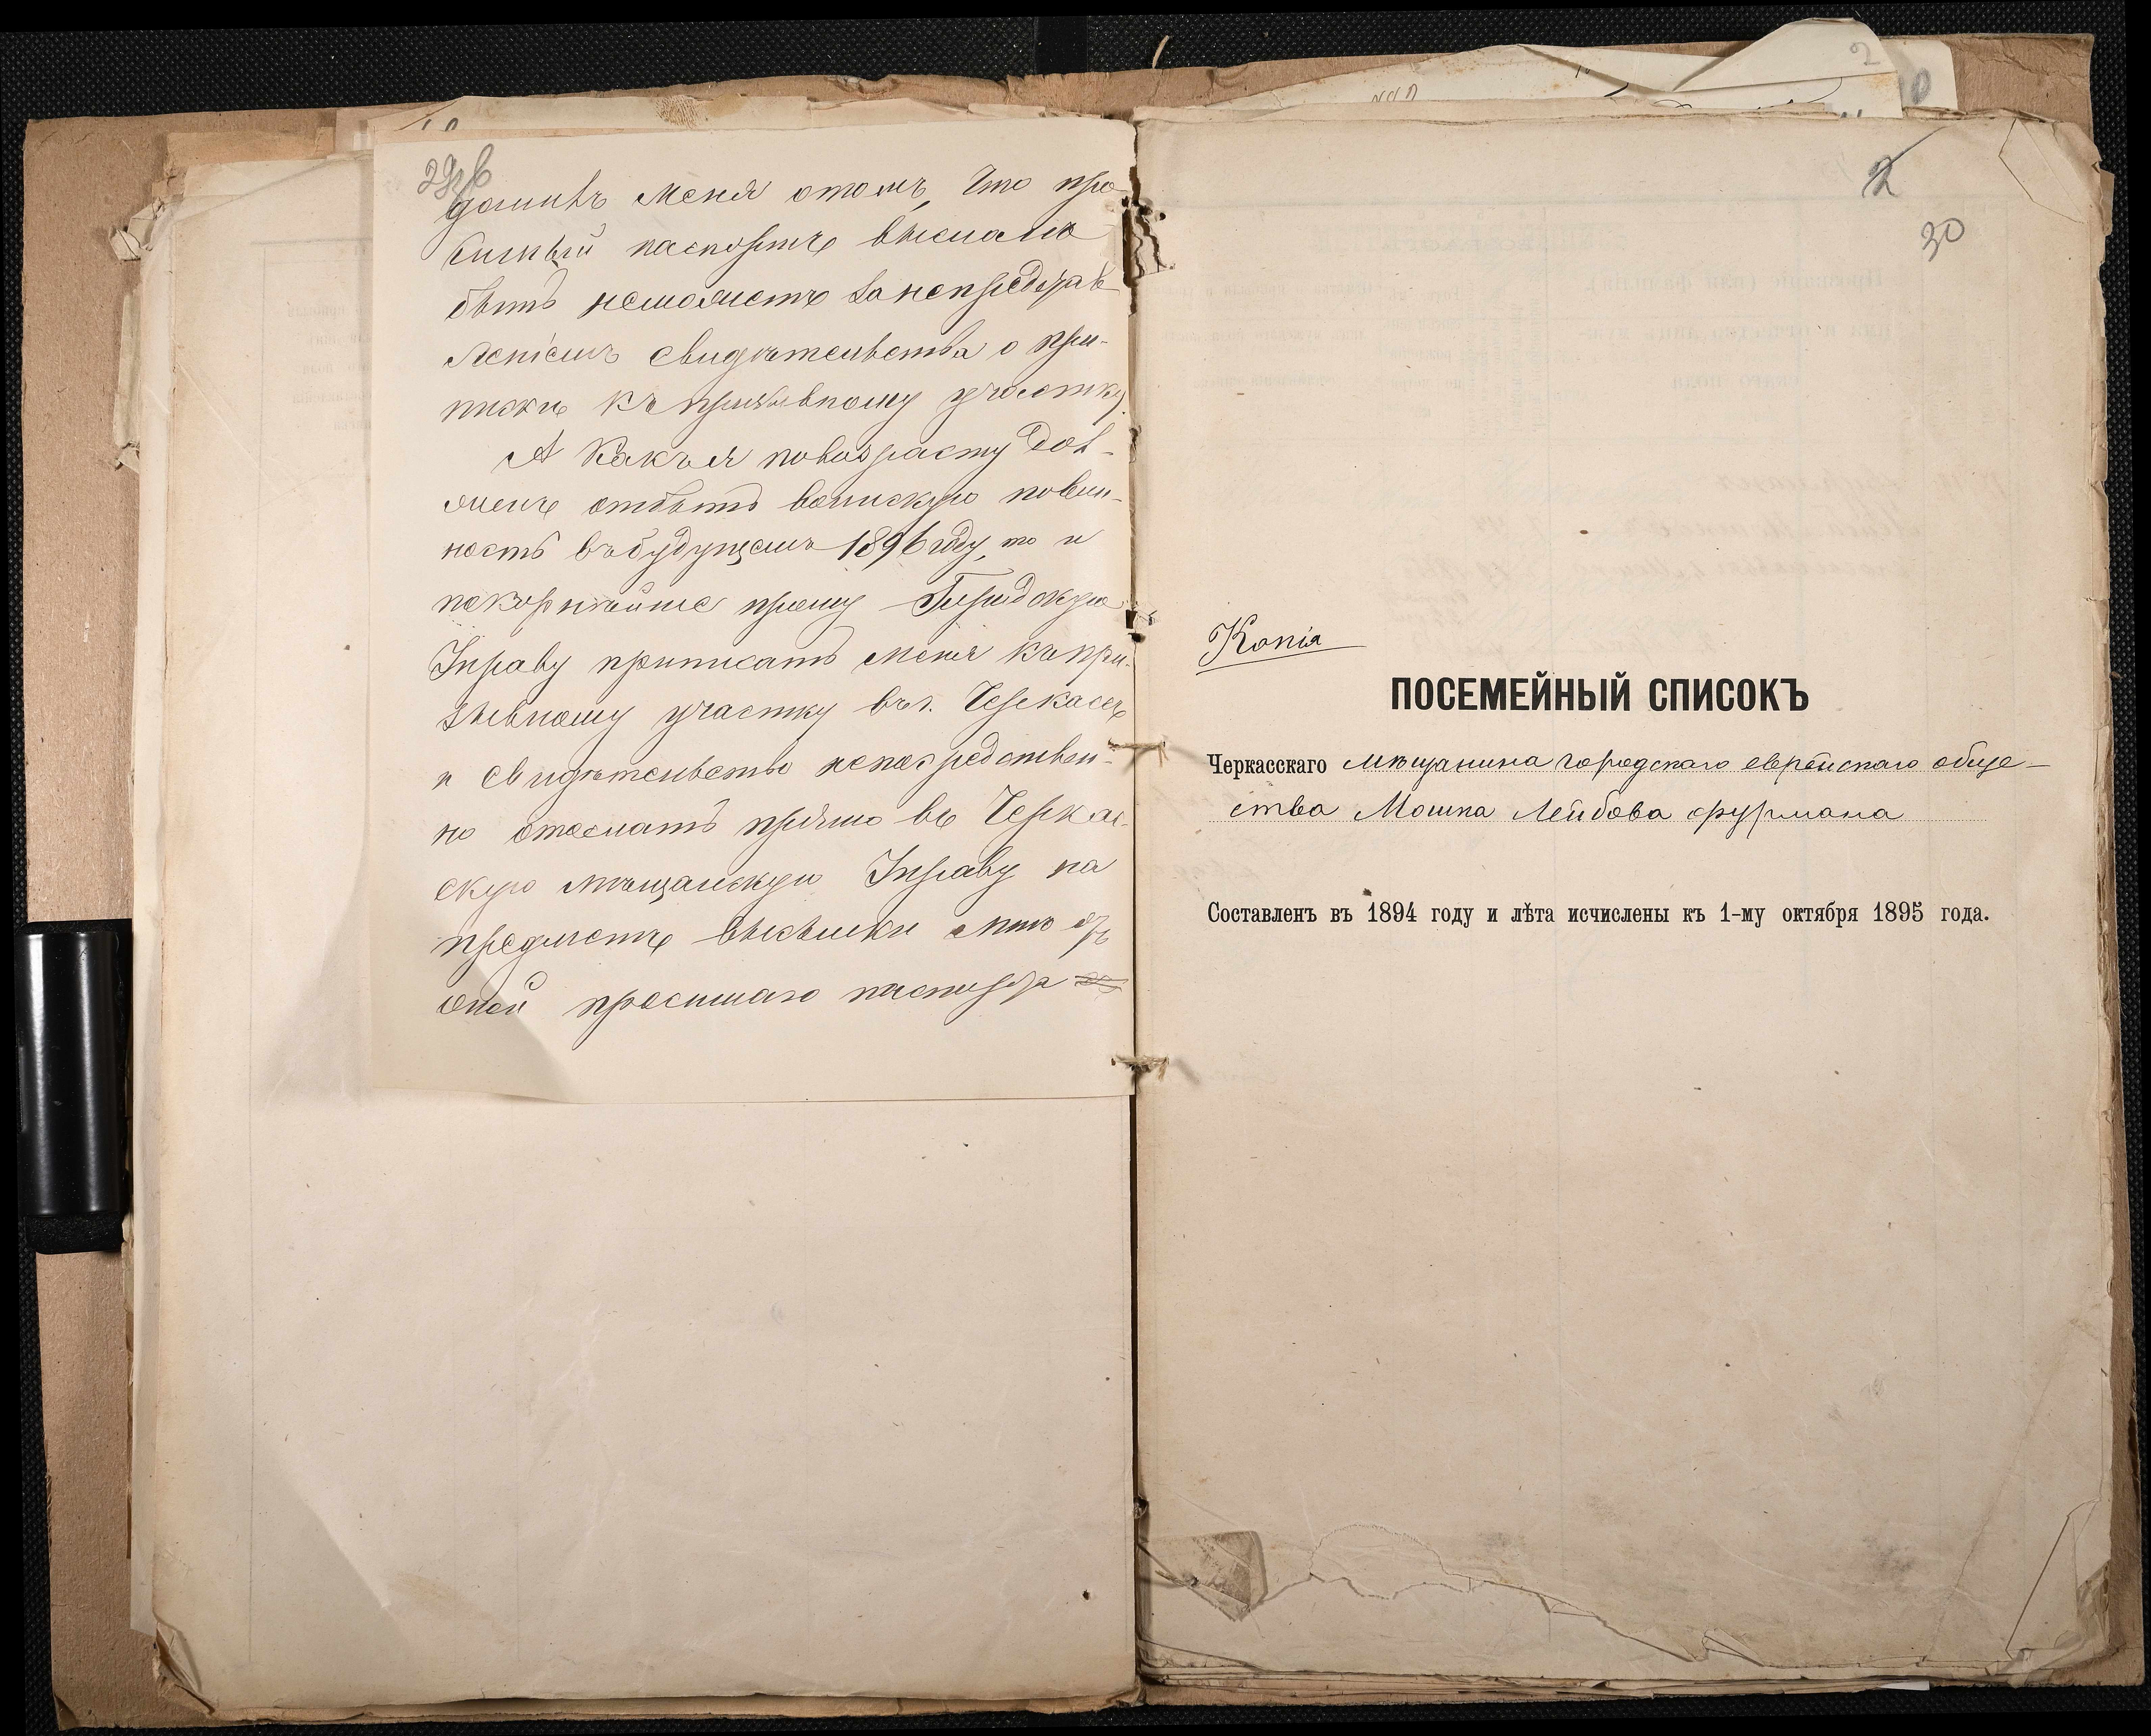 29об
домивъ меня отомъ, что про-
симый паспортъ высланъ
быть неможетъ занепредъяв-
леніемъ свидѣтельства о при-
пискѣ къ призывному участку.
А какъ я повозрасту дол-
женъ отбыть воинскую повин-
ность въ будущемъ 1896 году, то и
покорнѣйше прошу Городскую
Управу приписать меня къ при-
зывному участку въ г. Черкассѣ
и свидѣтельство непосредствен-
но отослать прямо въ Черкас-
скую мѣщанскую Управу на
предметъ высылки мнѣ изъ
оной просимаго паспорта
2
30
Копія
ПОСЕМЕЙНЫЙ СПИСОКЪ
Черкасскаго мѣщанина городскаго еврейскаго обще-
ства Мошка Лейбова Фурмана
Составленъ въ 1894 году и лѣта исчислены къ 1-му октября 1895 года.